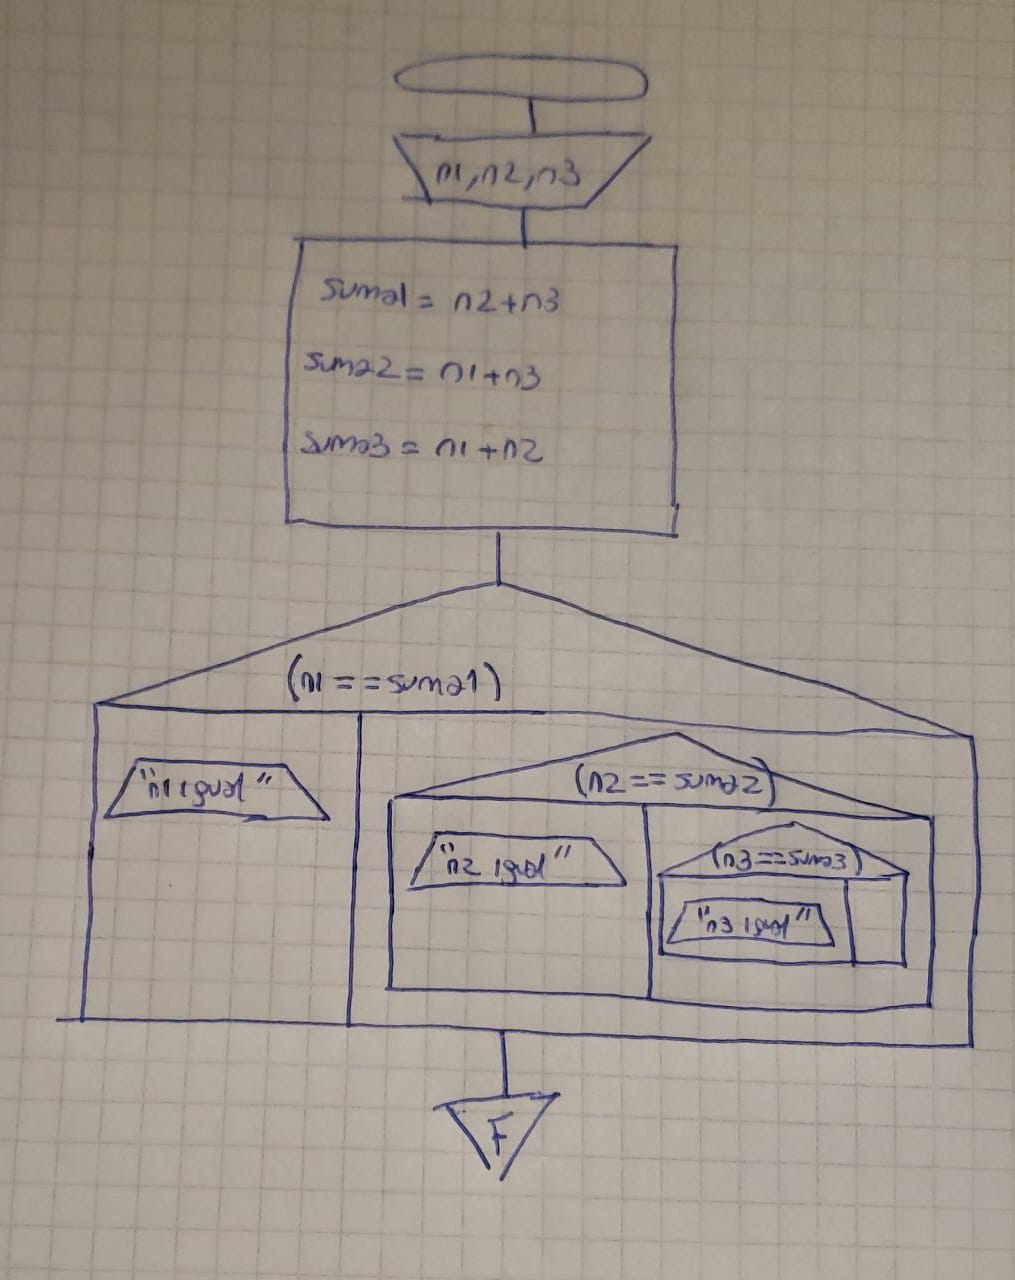 n1,n2,n3
suma1 = n2+n3
suma2 = n1+n3
suma3 = n1+n2
(n1==suma1)
"n1 igual"
(n2==suma2)
"n2 igual"
(n3==suma3)
"n3 igual"
F